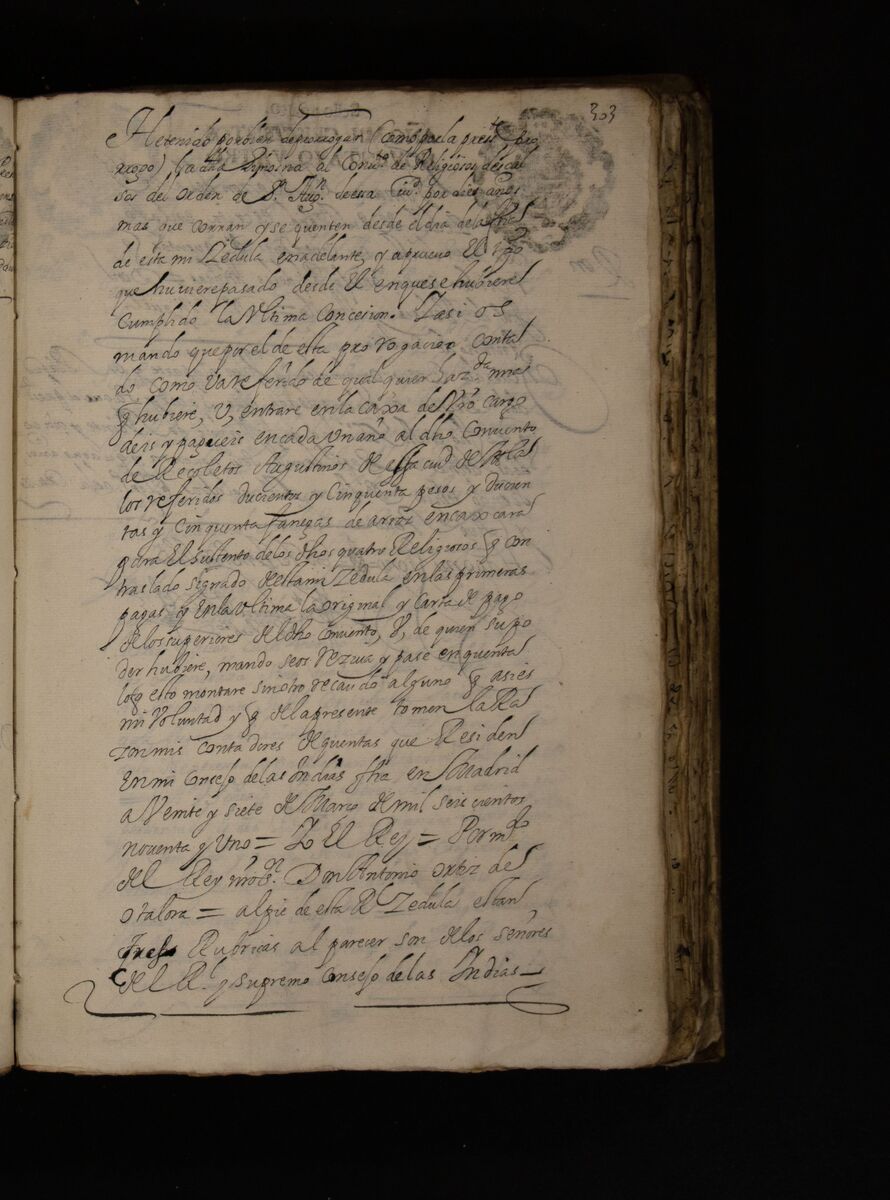 303
He tenido por bien de prorrogar (como por la pres.te pro
rrogo) la dha limosna al Conv.to de Religiosos descal
sos del orden de S.n Aug.n de esa Ciu.d por dies años
mas que corran y se quenten desde el dia de la
de esta mi Zedula en adelante, y apruevo el tpo
que huviere pasado desde el en que se hubiere
Cumplido la Ultima Concesion. Y asi os
mando que por el de esta prorogacion conta
do como va referido de qual quier haz.da mia
q hubiere, U, entrare en la caxa de Vro cargo
deis y pagueis en cada un año al dho Convento
de Recoletos Augustinos de essa ciud de Mla
los referidos ducientos y Cinquenta pesos y ducien
tas y Cinquenta fanegas de arroz en caxcara
para El sustento de los dhos quatro Religiosos q con
traslado signado de esta mi Zedula en las primeras
pagas y En la ultima la original y Carta de pago
de los superiores del dho Convento, U, de quien su po
der hubiere, mando se os reziva y pase en quenta
lo q esto montare sin otro recaudo alguno q asi es
mi Voluntad y q de la presente tomen la Ra
zon mis Contadores de quentas que Residen
En mi Consejo de las Indias fha en Madrid
a Veinte y siete de Março de mil seis cientos
noventa y Uno = Yo El Rey = Por m.do
del Rey nro S.r Don Antonio Ortiz de
Otalora = al pie de esta Rl Zedula estan
tres Rubricas al parecer son de los señores
del R.l y supremo Consejo de las Indias